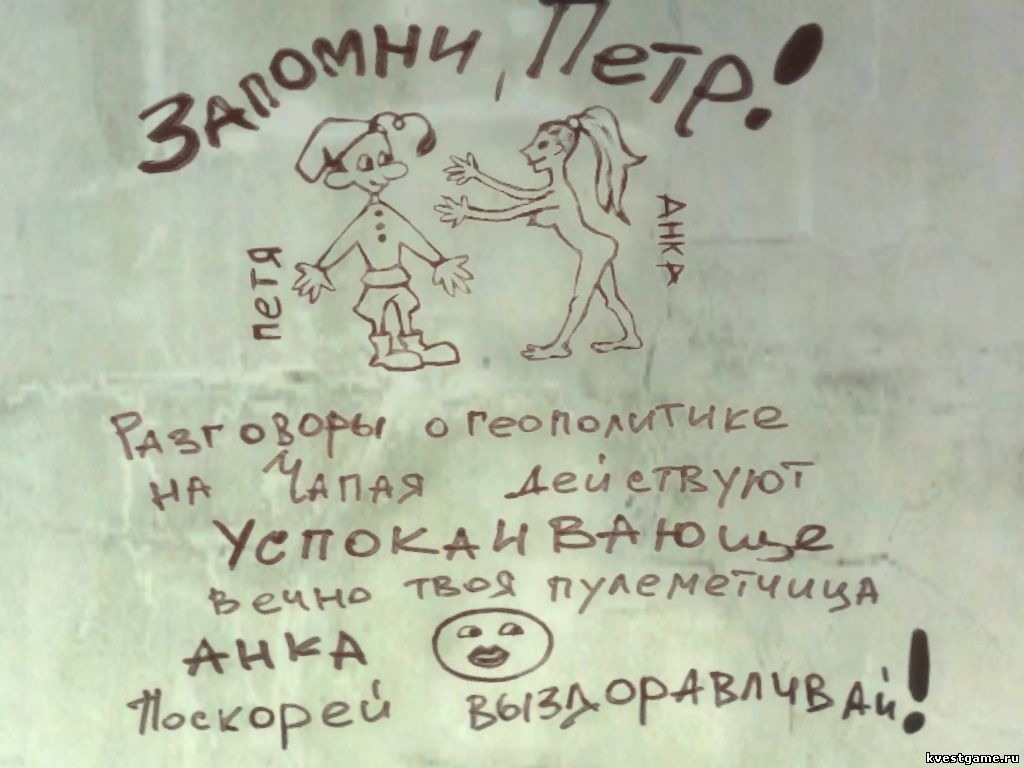 Запомни, Петр!
Петя
Анка
Разговоры о геополитике
на Чапая действуют
успокаивающе
вечно твоя пулеметчица
Анка
Поскорей выздоравливай!
kvestgame.ru